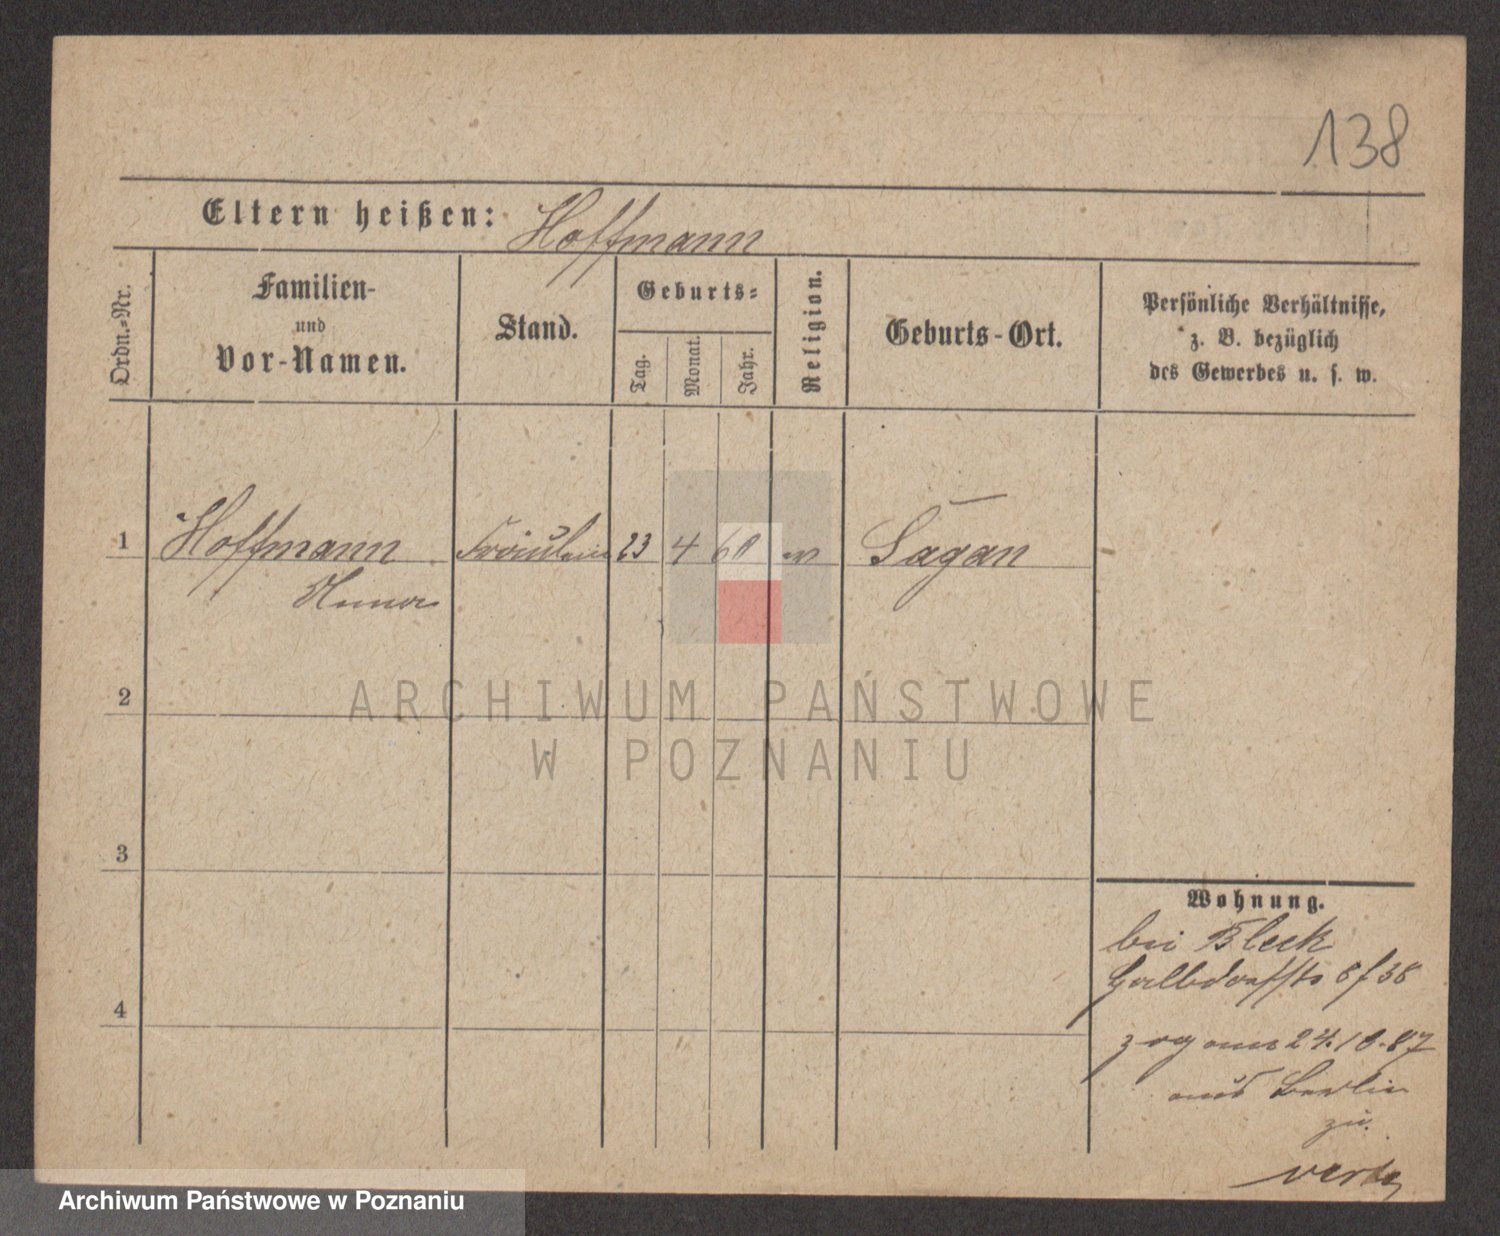 138
Eltern heißen: Hoffmann
Ordn.-Nr.
Familien-
und
Vor-Namen.
Stand.
Geburts-
Tag.
Monat.
Jahr.
Religion.
Geburts-Ort.
Persönliche Verhältnisse,
z. B. bezüglich
des Gewerbes u. s. w.
1 Hoffmann Fräulein 23 4 60 Sagan
2
3
4
Wohnung.
bei Bleck
Halbdorfstr
zog am 24.10.87
aus Berlin
zu.
ARCHIWUM PAŃSTWOWE
W POZNANIU
Archiwum Państwowe w Poznaniu